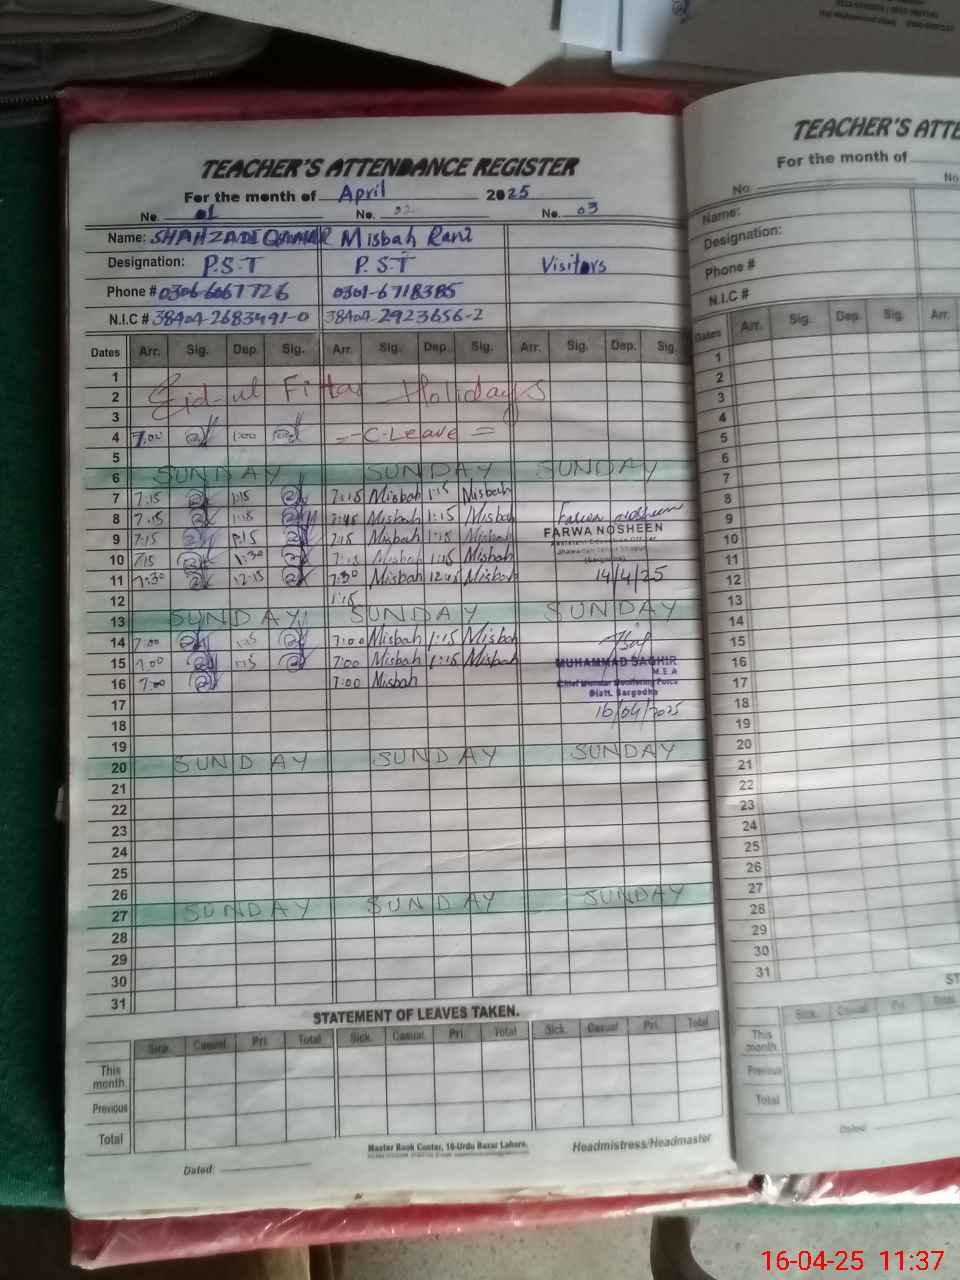 TEACHER'S ATTENDANCE REGISTER
For the month of April 2025
No. 01 No. 02 No. 03
Name: SHAHZADI QAMAR Misbah Rani
Designation: P.S.T P.S.T Visitors
Phone # 0306-6067726 0301-6718385
N.I.C # 38404-2683491-0 38404-2923656-2
Dates Arr. Sig. Dep. Sig. Arr. Sig. Dep. Sig. Arr. Sig. Dep. Sig.
1
2 Eid-ul Fitar Holidays
3
4 7:00 1:00 C-Leave =
5
6 SUNDAY SUNDAY SUNDAY
7 7:15 1:15 7:15 Misbah 1:15 Misbah
8 7:15 1:15 Misbah 1:15 Misbah
9 7:15 1:15 7:15 Misbah 1:15 Misbah
FARWA NOSHEEN
10 7:15 1:30 7:15 Misbah 1:15 Misbah
11 7:30 12:15 7:30 Misbah Misbah 14/4/25
12 1:15
13 SUNDAY SUNDAY SUNDAY
14 7:00 7:00 Misbah 1:15 Misbah
15 7:00 1:15 7:00 Misbah 1:15 Misbah
MUHAMMAD SAGHIR
M.E.A
16 7:00 7:00 Misbah
Chief Minister Monitoring Force
Distt. Sargodha
17 16/04/2025
18
19
20 SUNDAY SUNDAY SUNDAY
21
22
23
24
25
26
27 SUNDAY SUNDAY SUNDAY
28
29
30
31
STATEMENT OF LEAVES TAKEN.
Sick. Casual. Pri. Total Sick. Casual. Pri. Total Sick. Casual. Pri. Total
This month.
Previous
Total
Master Book Center, 16-Urdu Bazar Lahore.
Dated: Headmistress/Headmaster
TEACHER'S ATTE
For the month of
No. No
Name:
Designation:
Phone #
N.I.C #
Dates Arr. Sig. Dep. Sig. Arr.
1
2
3
4
5
6
7
8
9
10
11
12
13
14
15
16
17
18
19
20
21
22
23
24
25
26
27
28
29
30
31
ST
Sick. Casual. Pri. Total Sick.
This month.
Previous
Total
Dated:
16-04-25 11:37